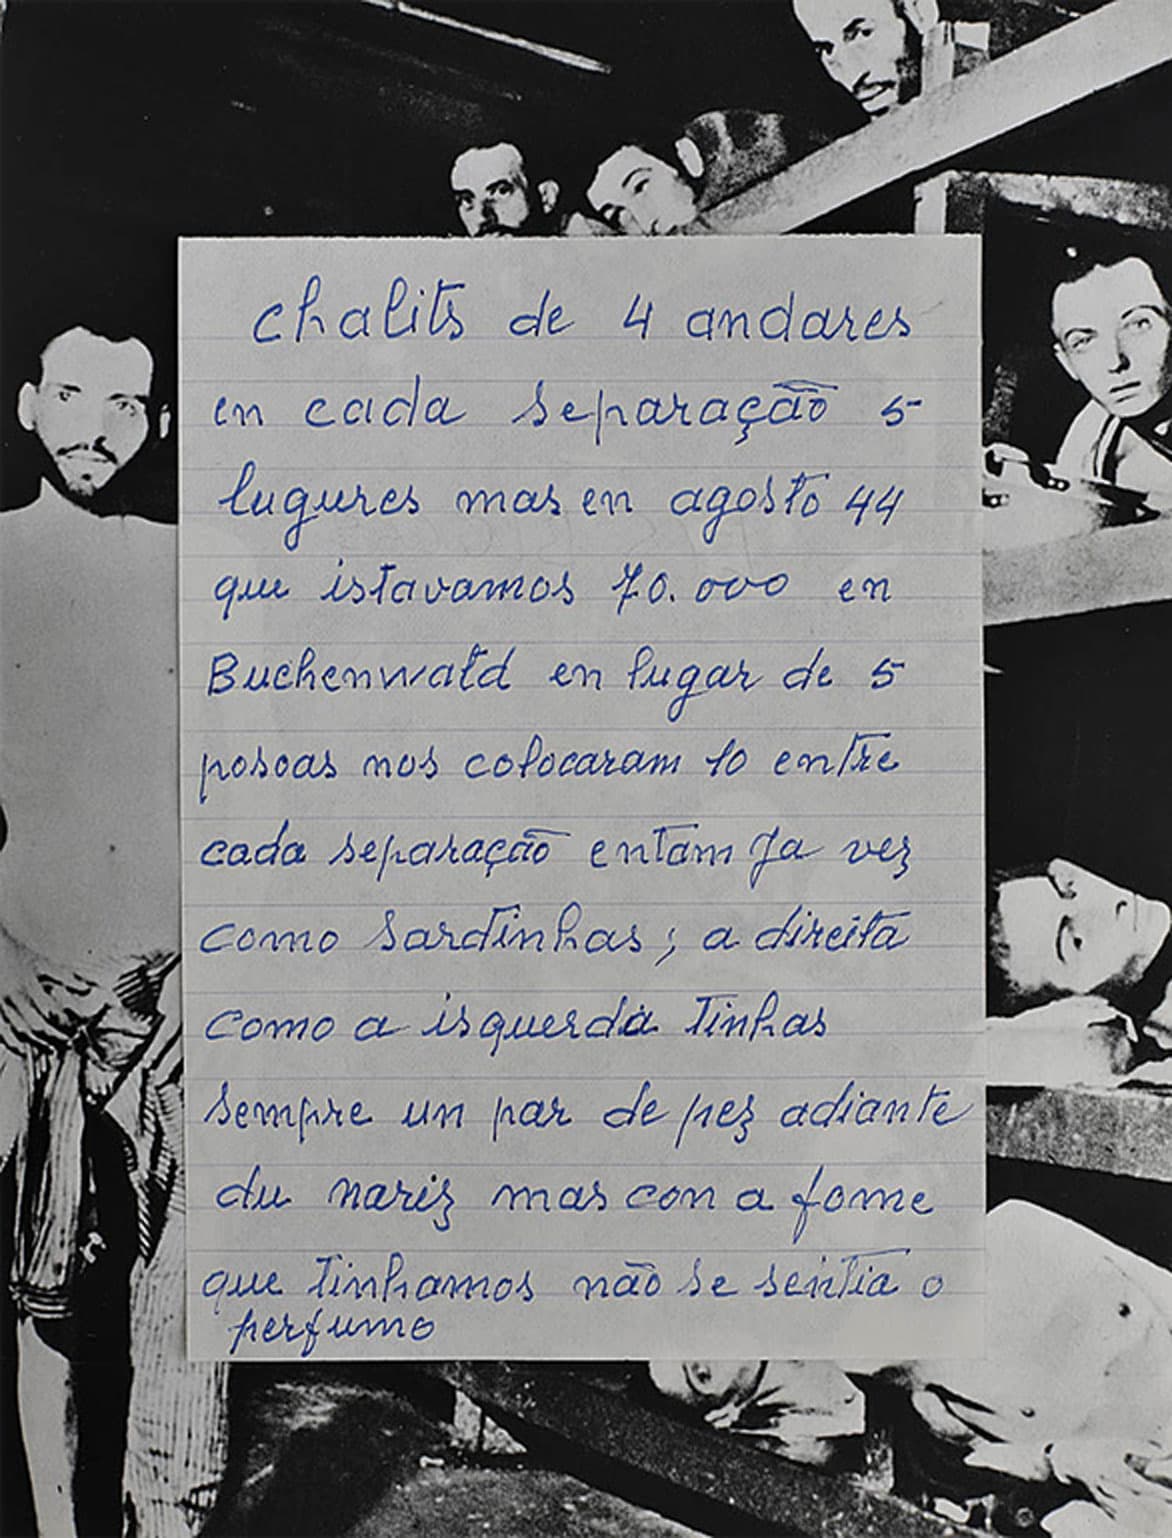 chalits de 4 andares
en cada separação 5
lugures mas en agosto 44
que istavamos 70.000 en
Buchenwald en lugar de 5
posoas nos colocaram 10 entre
cada separação entam Ja vez
como sardinhas; a direita
como a isquerda tinhas
sempre un par de pez adiante
du nariz mas con a fome
que tinhamos não se sentia o
perfumo